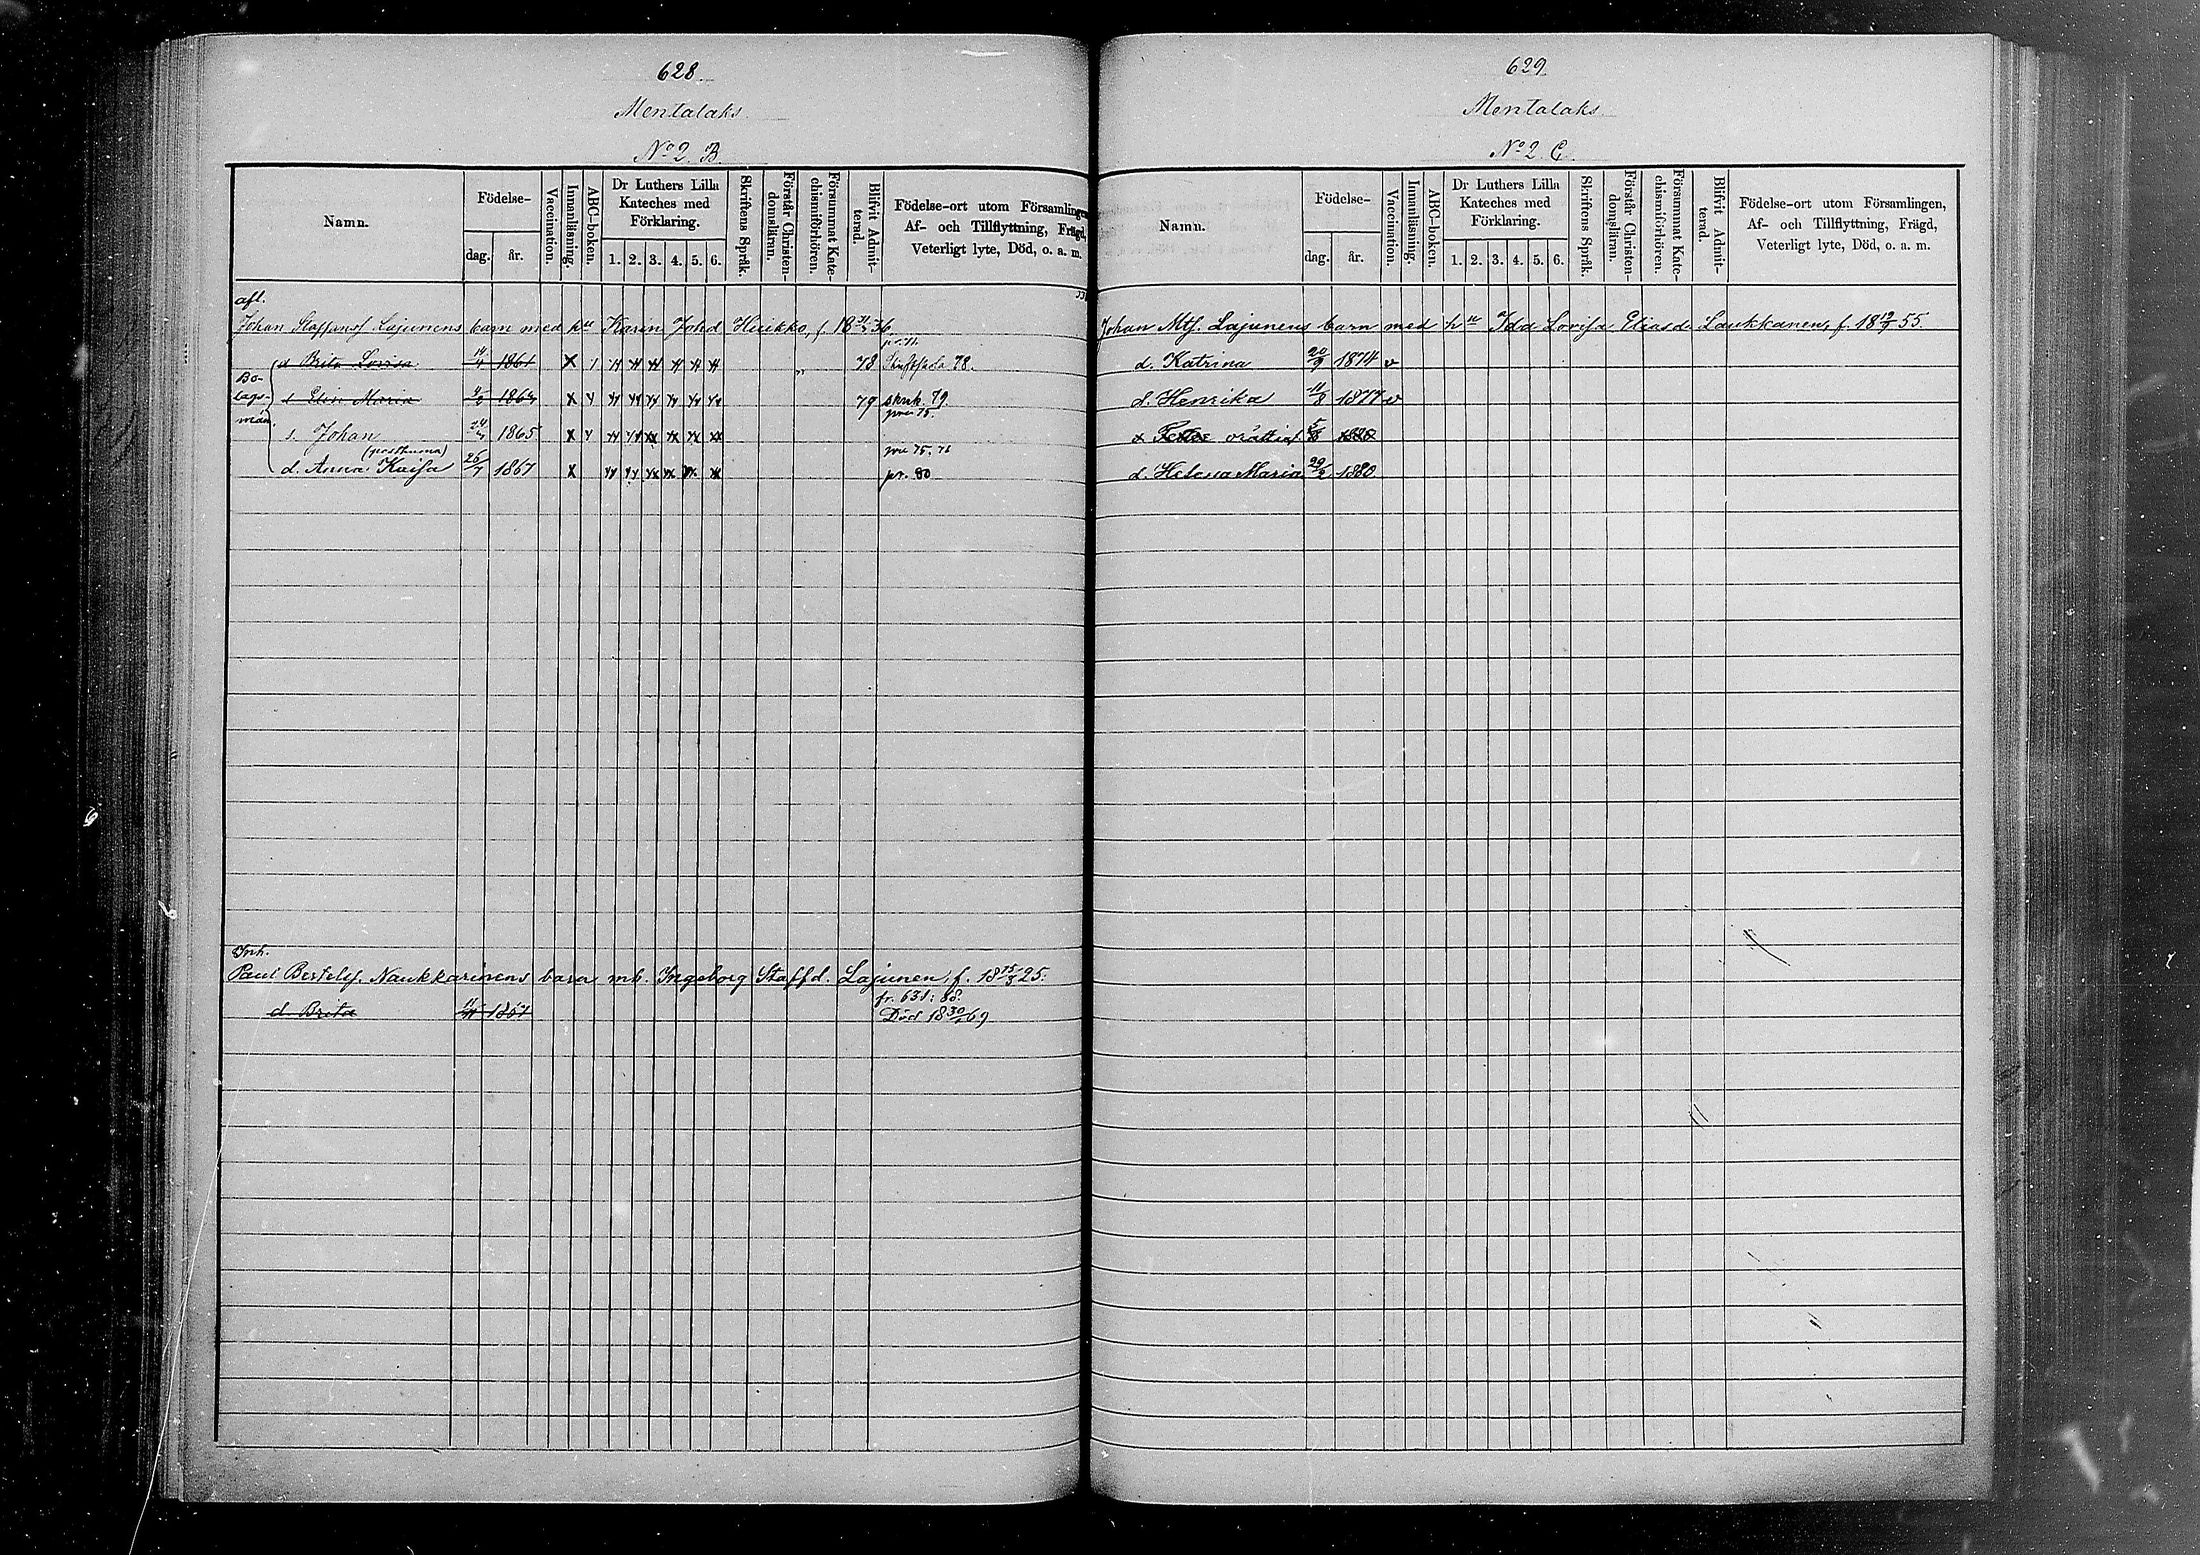 628.
Mentalaks
No 2. B.
Namn.
Födelse-
dag.
år.
Vaccination.
Innanläsning.
ABC-boken.
Dr Luthers Lilla
Kateches med
Förklaring.
1. 2. 3. 4. 5. 6.
Skriftens Språk.
Förstår Christen-
domsläran.
Försummat Kate-
chismiförhören.
Blifvit Admit-
terad.
Födelse-ort utom Församlingen,
Af- och Tillflyttning, Frägd,
Veterligt lyte, Död, o. a. m.
afl.
Johan Staffansf. Lajunens barn med hu Karin Johd Hirikko, f. 18 36
d Brita Lovisa 1861 x 78 78.
Bo-
lags-
män.
Elin Maria x 79 79
s. Johan 24 1865 x
(posthuma)
d. Anna Kaisa 26/7 1867 x pr. 80
Inh.
Paul Bertelsf. Naukkarinens barn mb. Ingeborg Staffd. Lajunen, f. 18 15/3 25.
fr. 631: 88.
d Brita Död 18 30/1 69
629
Mentalaks
No 2. C.
Namn.
Födelse-
dag.
år.
Vaccination.
Innanläsning.
ABC-boken.
Dr Luthers Lilla
Kateches med
Förklaring.
1. 2. 3. 4. 5. 6.
Skriftens Språk.
Förstår Christen-
domsläran.
Försummat Kate-
chismiförhören.
Blifvit Admit-
terad.
Födelse-ort utom Församlingen,
Af- och Tillflyttning, Frägd,
Veterligt lyte, Död, o. a. m.
Johan Mtf. Lajunens barn med hu Ida Lovisa Eliasd. Laukkanen, f. 18 19/9 55.
d. Katrina 20/9 1874 v
d. Henrika 11/8 1877 v
1880
d. Helena Maria 29/2 1880